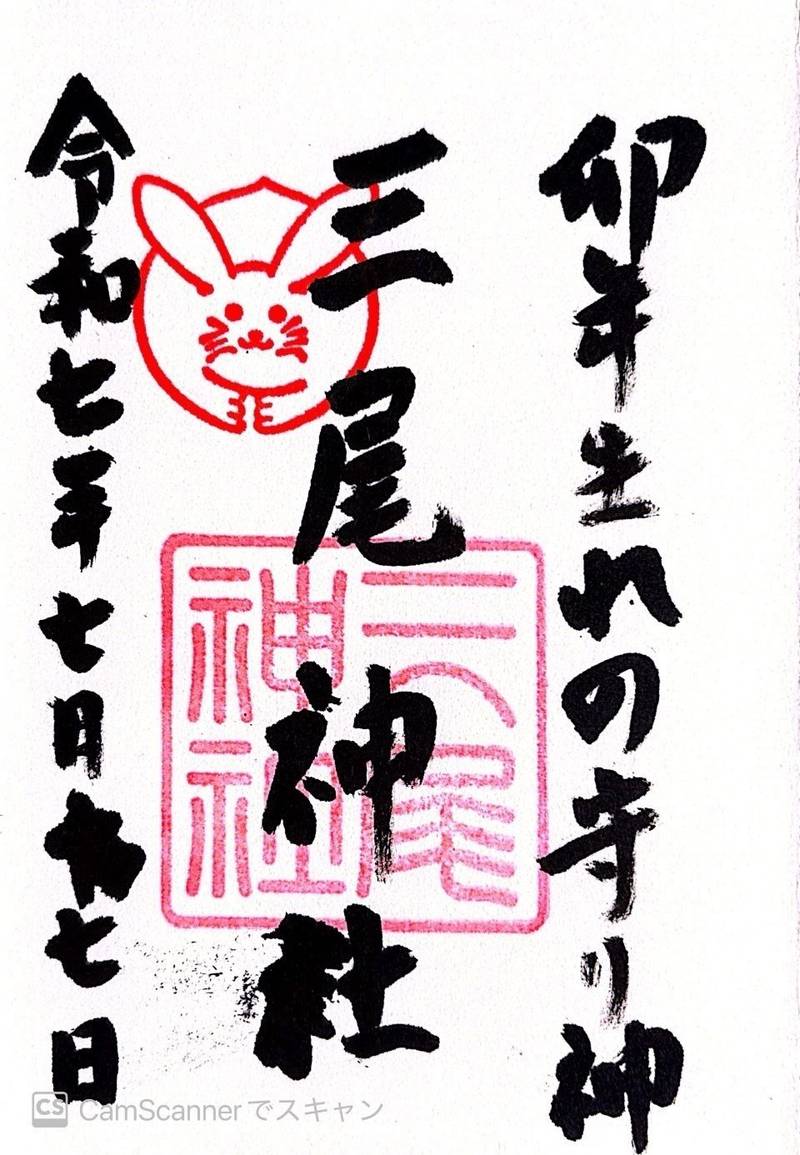 卯年生れの守り神
三尾神社
三尾神社
令和七年七月廿七日
CS CamScanner でスキャン